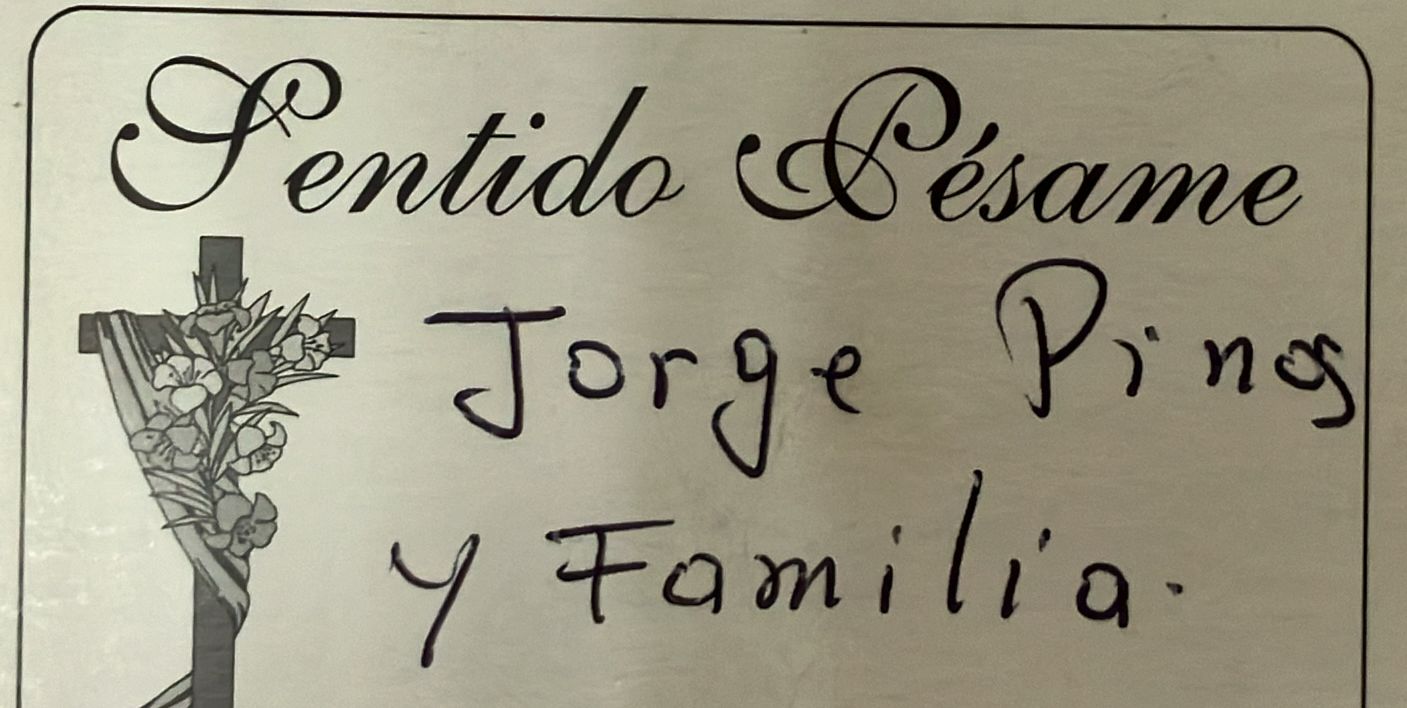 Sentido Pésame
Jorge Pinos
y Familia.